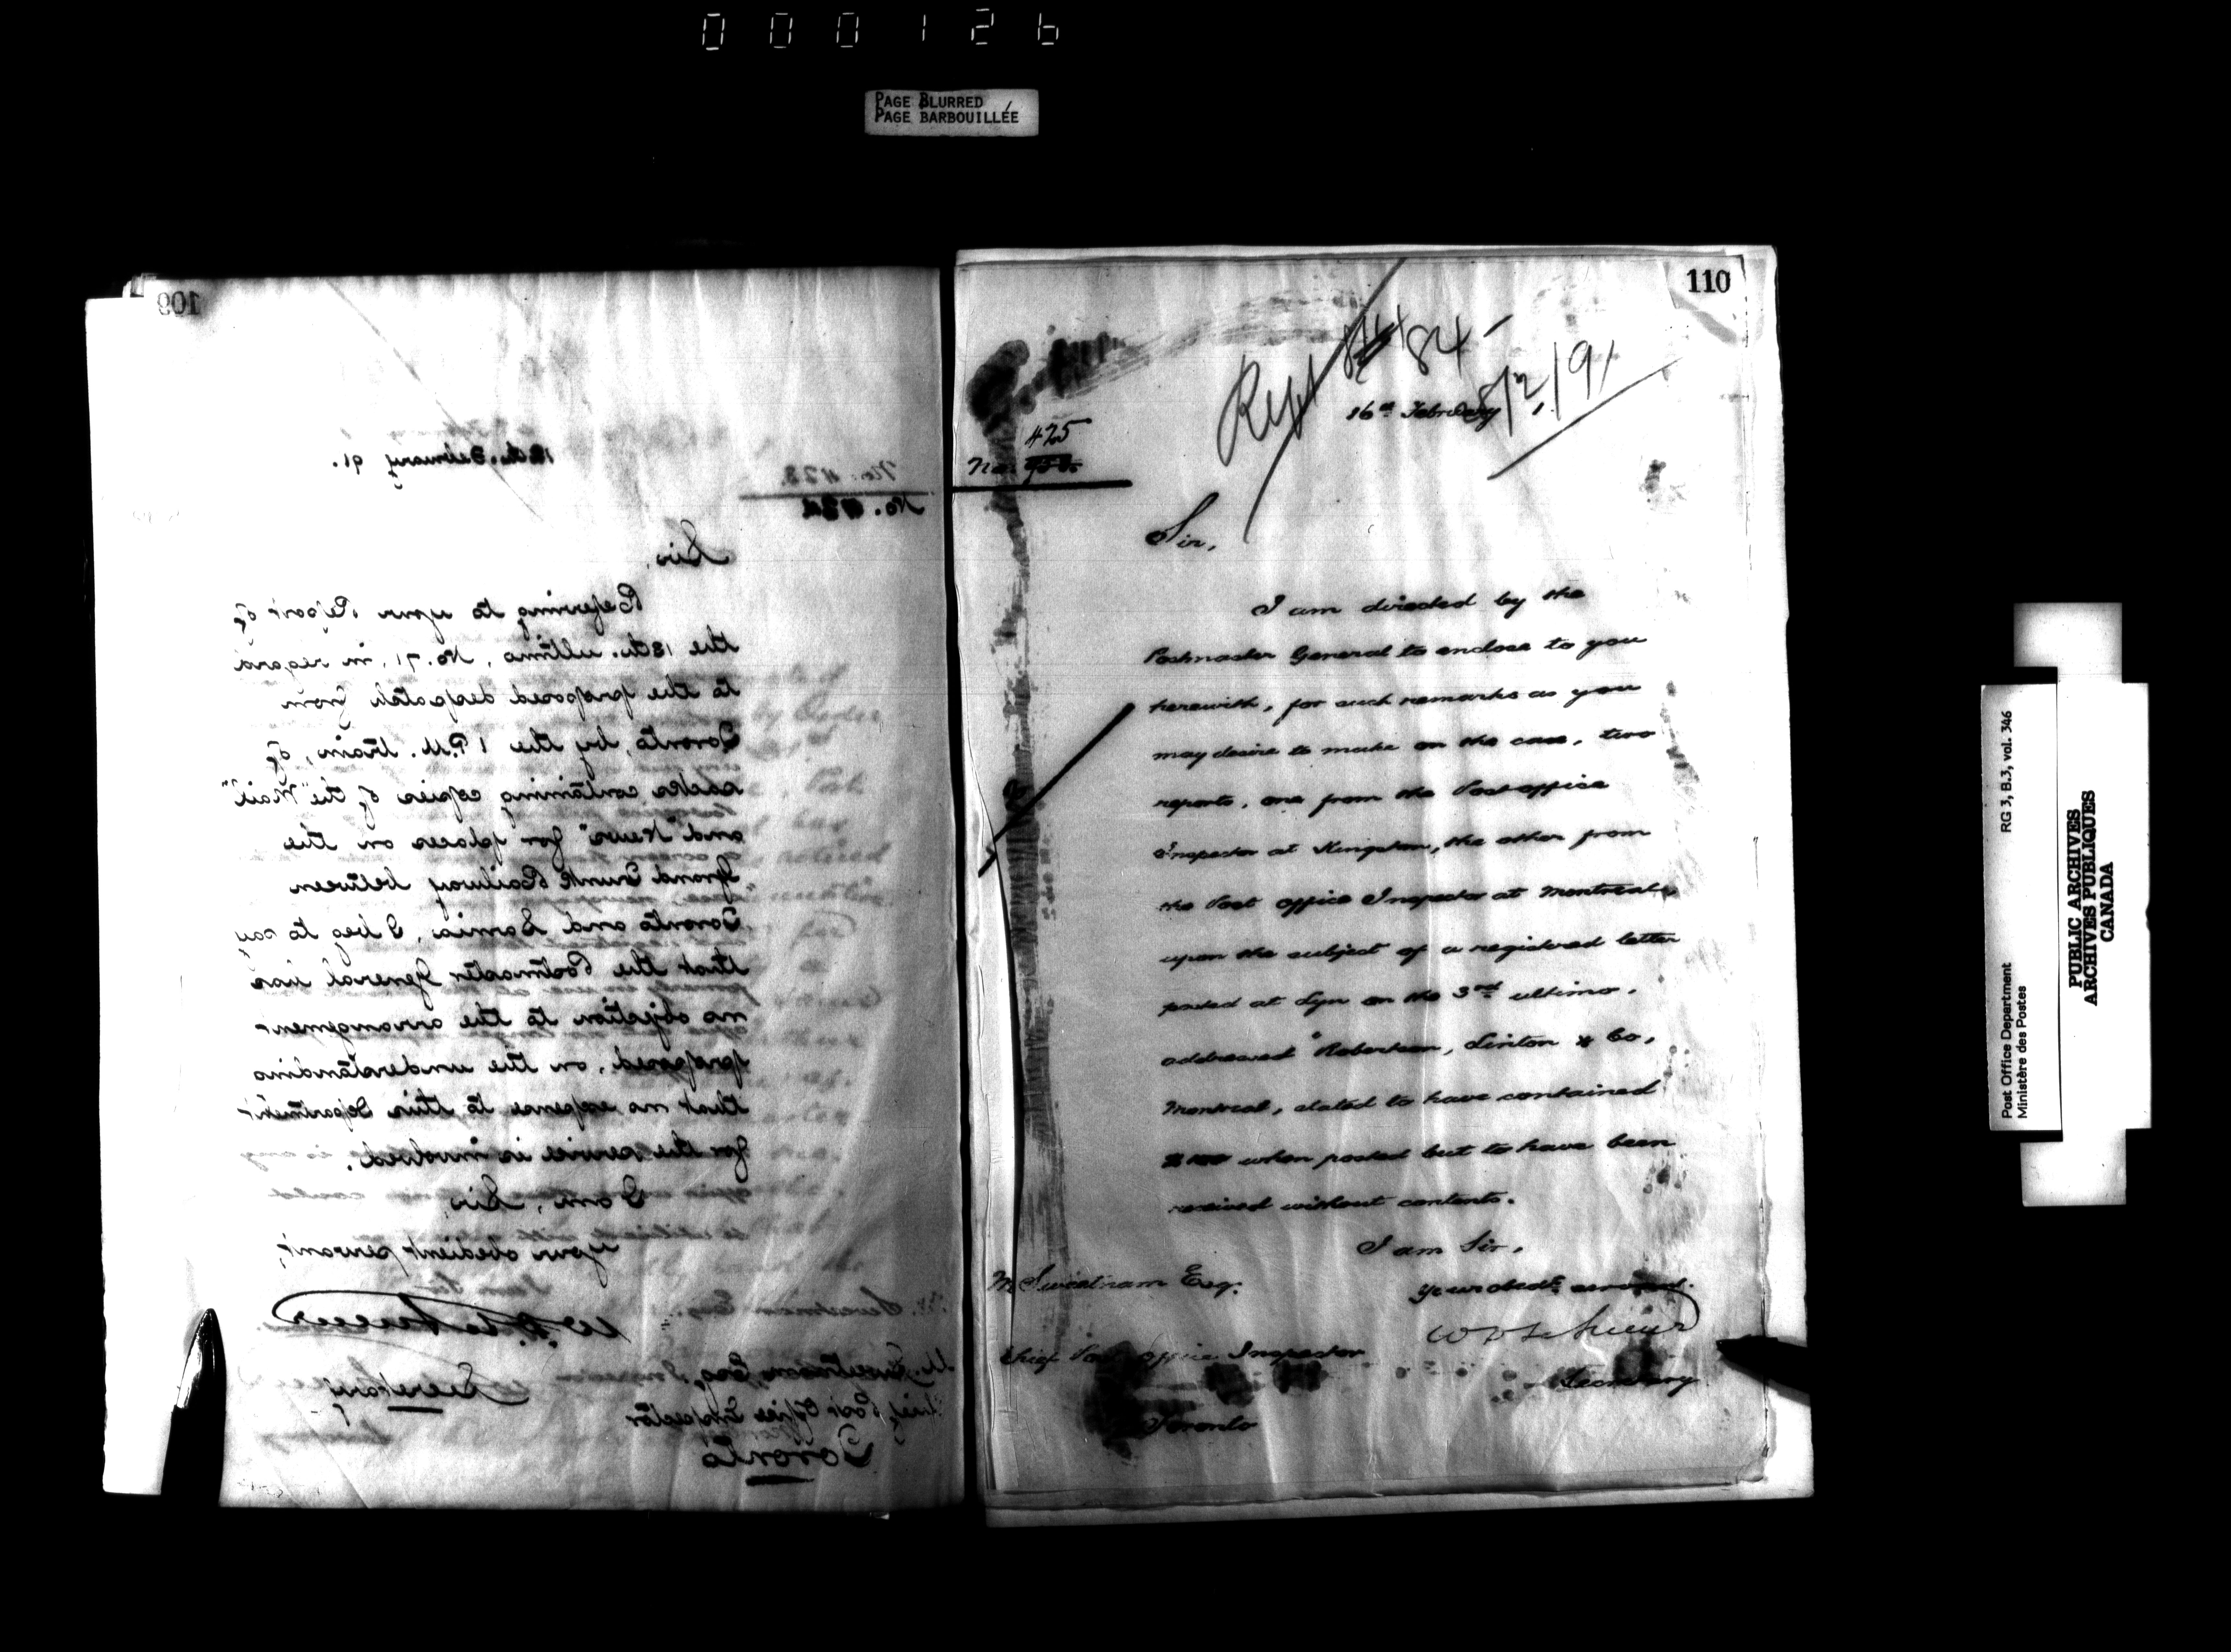 000126
PAGE BLURRED
PAGE BARBOUILLÉE
109
12th. February 91.
No. 423.
No. 424
Sir,
Referring to your Report of
the 13th. ultimo, No. 71, in regard
to the proposed despatch from
Toronto, by the 1 P.M. train, of
sacks containing copies of the "Mail"
and "News" for places on the
Grand Trunk Railway between
Toronto and Sarnia, I beg to say
that the Postmaster General has
no objection to the arrangement
proposed, on the understanding
that no expense to this Department
for the service is involved.
I am, Sir,
Your obedient servant,
Secretary
M. Sweetnam, Esq.
Chief Post Office Inspector
Toronto
110
Rept 84
/2/91
16th February
425
No.
Sir,
I am directed by the
Postmaster General to enclose to you
herewith, for such remarks as you
may desire to make on the case, two
reports, one from the Post office
Inspector at Kingston, the other from
the Post office Inspector at Montreal,
upon the subject of a registered letter
posted at Lyn on the 3rd ultimo,
addressed "Robertson, Linton & Co,
Montreal, stated to have contained
when posted but to have been
received without contents.
I am Sir,
Your obedt. servant.
M Sweetnam Esq.
Chief Post Office Inspector
Secretary
Toronto
Post Office Department
Ministère des Postes
RG 3, B.3, vol. 346
PUBLIC ARCHIVES
ARCHIVES PUBLIQUES
CANADA